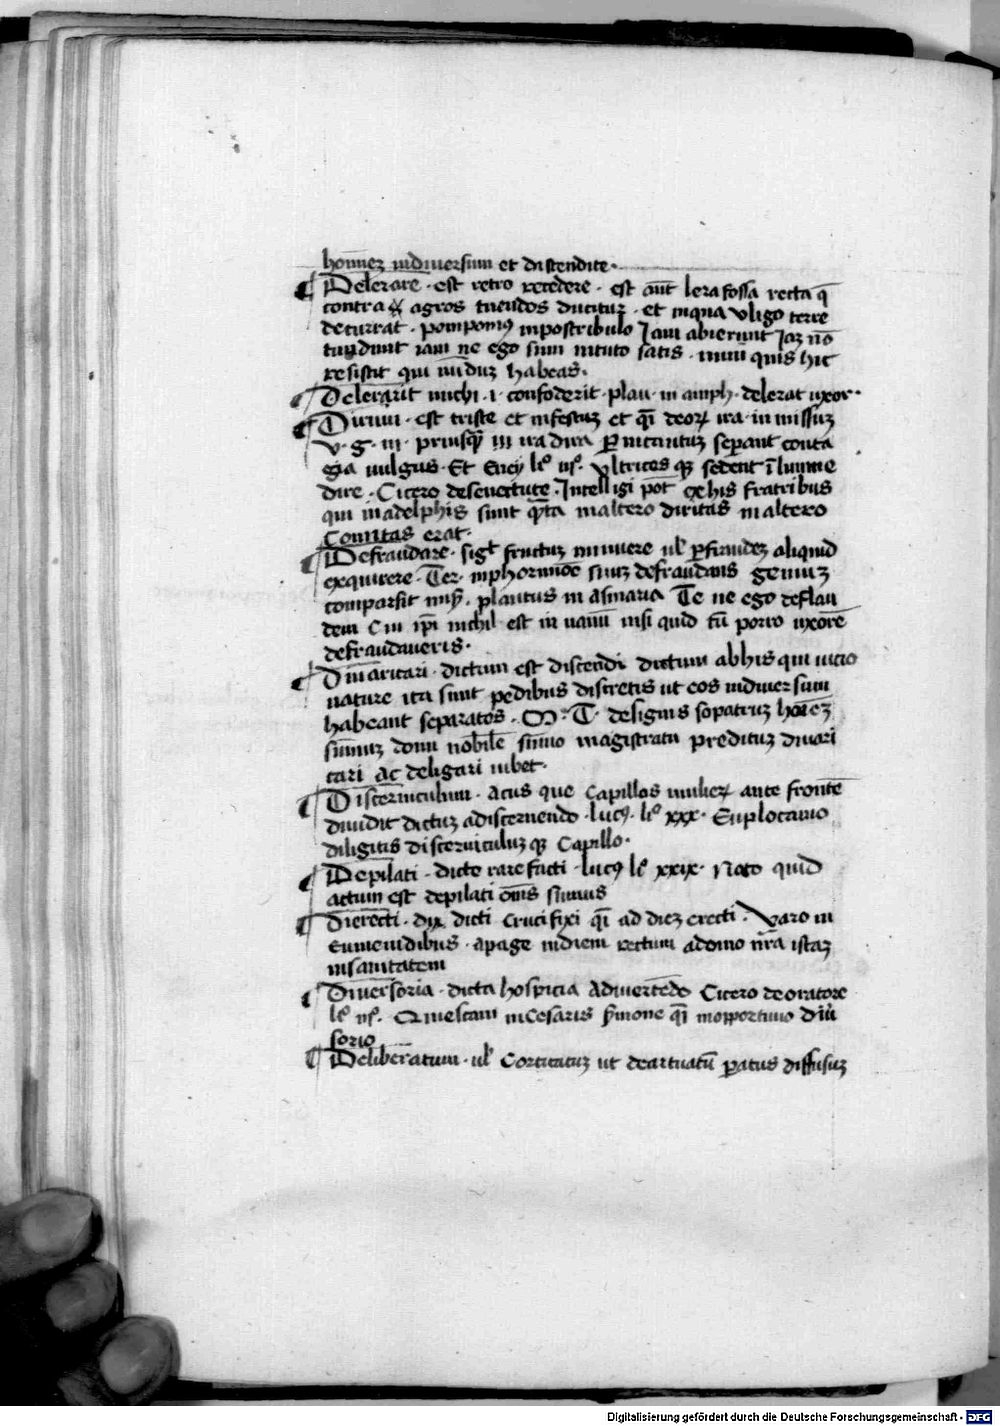 hoı̅nez indiuersum et distendite·
¶ Delerare · est retro recedere · est aut̅ lera fossa recta q̅
contra agros tuendos ducitur · et inqua vligo terre
decurrat · pomponiꝰ inpostribulo Jam abierunt Jaꝫ no̅
tundunt iam ne ego sum intuto satis · quis hic
resistit qui nuduꝫ habeas·
¶ Delerarit michi ·i· confoderit · plau· in amph· delerat uxor·
¶ Dirum · est triste et infestuꝫ et q̅i deoꝝ ira in missuꝫ
v· g· iij · priusqꝫ dira seperant conta
gia uulgus · Et Eney lꝰ ultrices qꝫ sedent i̅ lumine
dire · Cicero desenectute · Intelligi pot̅ exhis fratribus
qui inadelphis sunt q̅ta inaltero diritas in altero
Comitas erat·
¶ Defraudare · sigt̅ fructuꝫ minuere ul̅ ꝑfraudeꝫ aliquid
exquirere · Ter· inphormio̅e suuꝫ defraudans geniuꝫ
comparsit · plautus in asinaria Te ne ego deflau
dem Cui ip̅i nichil est in uanu̅ nisi quid tu̅ porro uxore̅
defraudaueris·
¶ Diuaricari · dictum est discendi dictum abhis qui uicio
nature ita sunt pedibus discretis ut eos indiuersum
habeant separatos · M· T· designis sopatruꝫ ho̅ieꝫ
su̅muꝫ domi nobile su̅mo magistratu preditum diuari
cari ac deligari iubet·
¶ Discerniculum · acus que Capillos mulieꝝ ante fronte̅
diuidit dictuꝫ adiscernendo · lucꝰ· lꝰ xxx· Euplocamo
diligitis discerniculuꝫ qꝫ Capillo·
¶ Depilati · dicte rare facti · lucꝰ lꝰ xxix· Noto quid
actum est depilati om̅s sumus
¶ Dierecti · dix̅ dicti Crucifixi q̅i ad dieꝫ erecti · Varo in
Eumenidibus · apage indiem rectum adomo nr̅a istaꝫ
insanitatem
¶ Diuersoria · dicta hospicia adiuerte̅do Cicero deoratore
lꝰ · Quiescam inCesaris s̅mone q̅i inopportuno diu̅
sorio
¶ Deliberatum · ul̅ ut deartuatu̅ ꝑatus diffusuꝫ
Digitalisierung gefördert durch die Deutsche Forschungsgemeinschaft · DFG